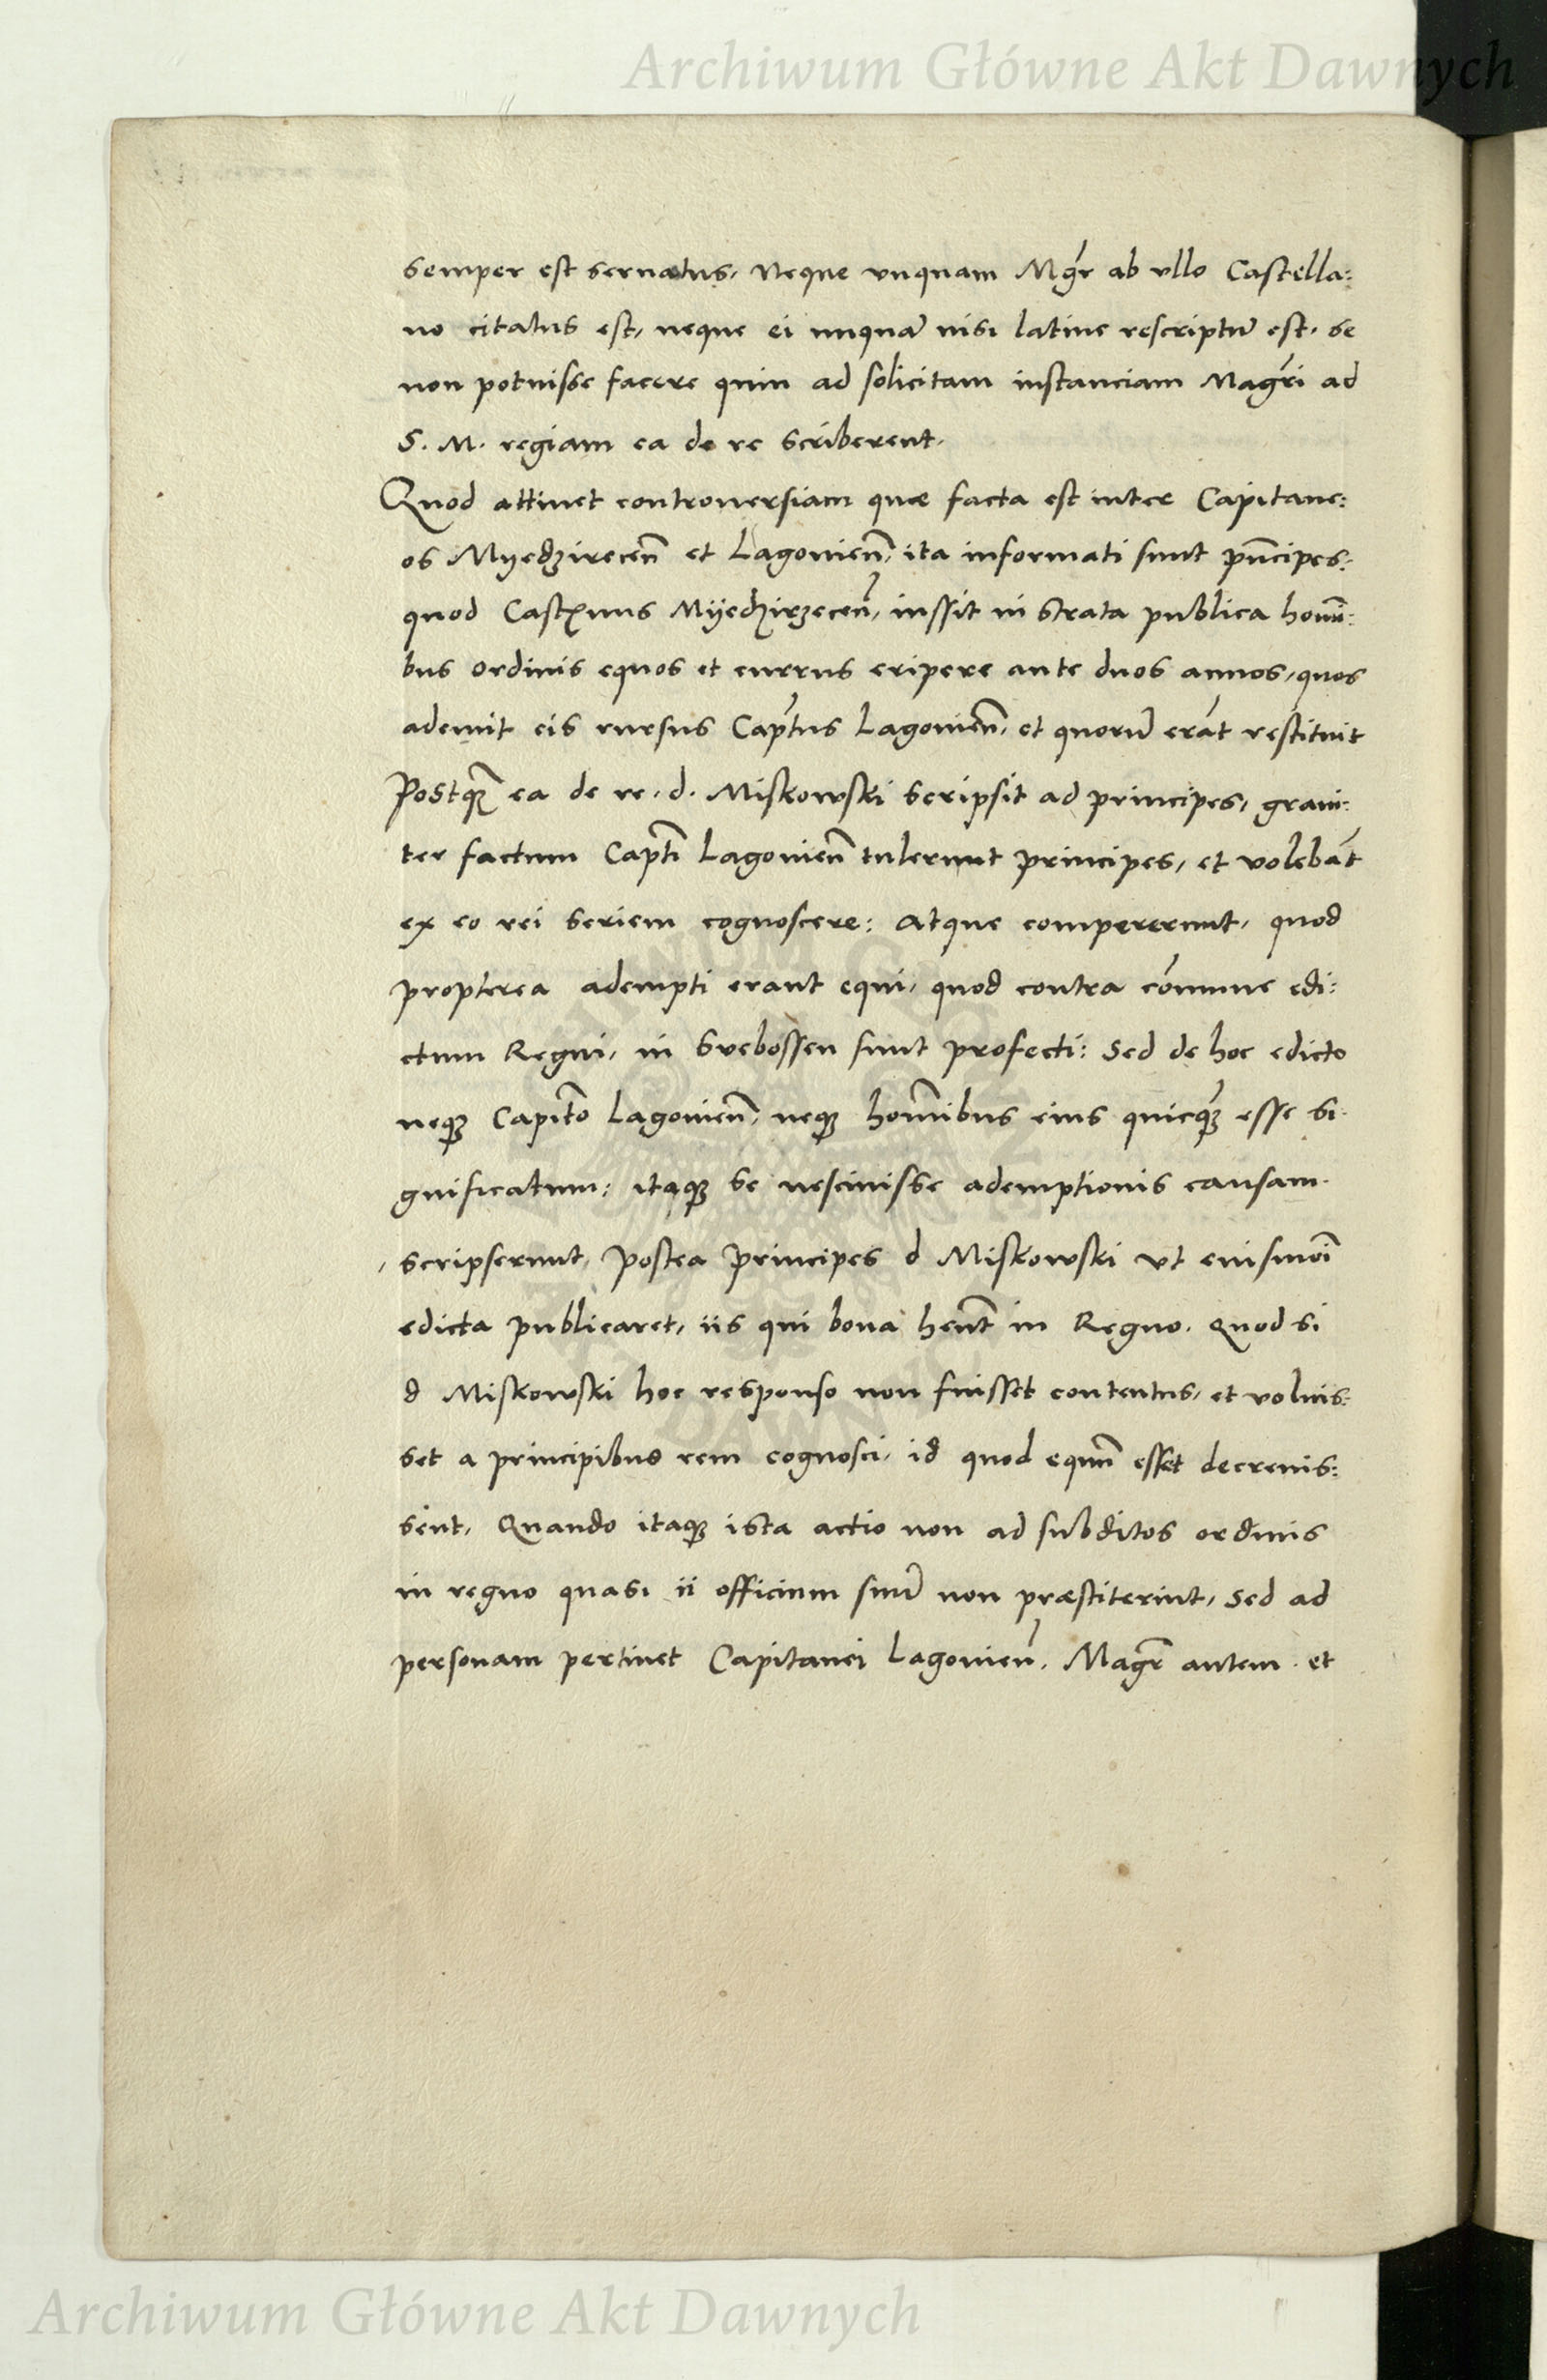 Archiwum Główne Akt Dawnych
semper est seruatus, Neque vnquam Mgr̃ ab vllo Castella:
no citatus est, neque ei vnquã nisi latine rescriptũ est, se
non potuisse facere quin ad solicitam instanciam Magr̃i ad
S. M. regiam ea de re scriberent.
Quod attinet controuersiam quæ facta est inter Capitane:
os Myedzirecen̄ et Lagouien̄, ita informati sunt pn̄cipes:
quod Castn̄us Myedzirzecen̄, iussit in strata publica homi:
bus ordinis equos et currus eripere ante duos annos, quos
ademit eis rursus Cap̃tus Lagouien̄, et quorũ erãt restituit
Postq̃ ea de re, d. Miskowski scripsit ad principes, graui:
ter factum Captĩ Lagouien̄ tulerunt principes, et volebãt
ex eo rei seriem cognoscere: Atque compererunt, quod
propterea adempti erant equi, quod contra cõmune edi:
ctum Regni, in Svebossen sunt profecti: Sed de hoc edicto
neqȝ Capitõ Lagouien̄, neqȝ hoĩnibus eius quicq̃ȝ esse si:
gnificatum: itaqȝ se nesciuisse ademptionis causam.
scripserunt, Postea Principes d Miskowski vt euismõi
edicta publicaret, iis qui bona hẽnt in Regno. Quod si
d Miskowski hoc responso non fuisset contentus, et voluis:
set a principibus rem cognosci, id quod equũm esset decreuis:
sent, Quando itaqȝ ista actio non ad subditos ordinis
in regno quasi ii officium suũ non præstiterint, Sed ad
personam pertinet Capitanei Lagouien̄. Magr̃ autem et
Archiwum Główne Akt Dawnych